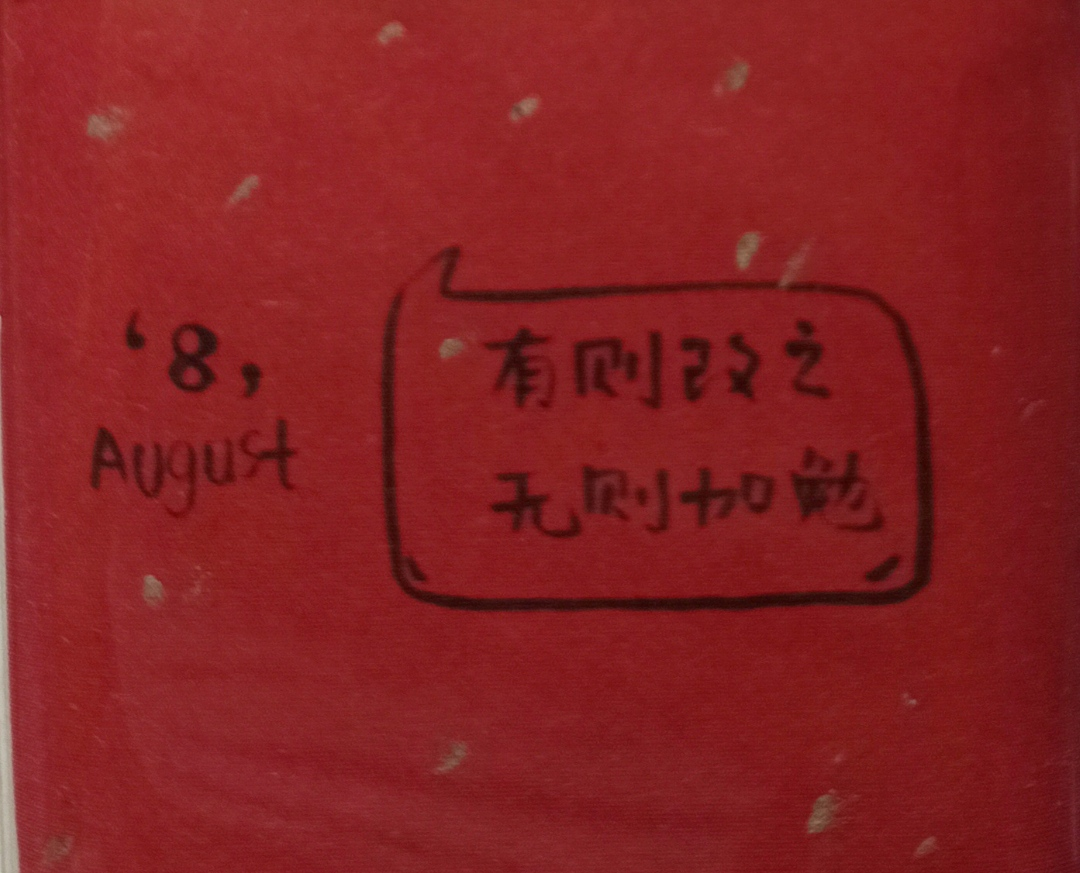 ‘8,
August
有则改之
无则加勉